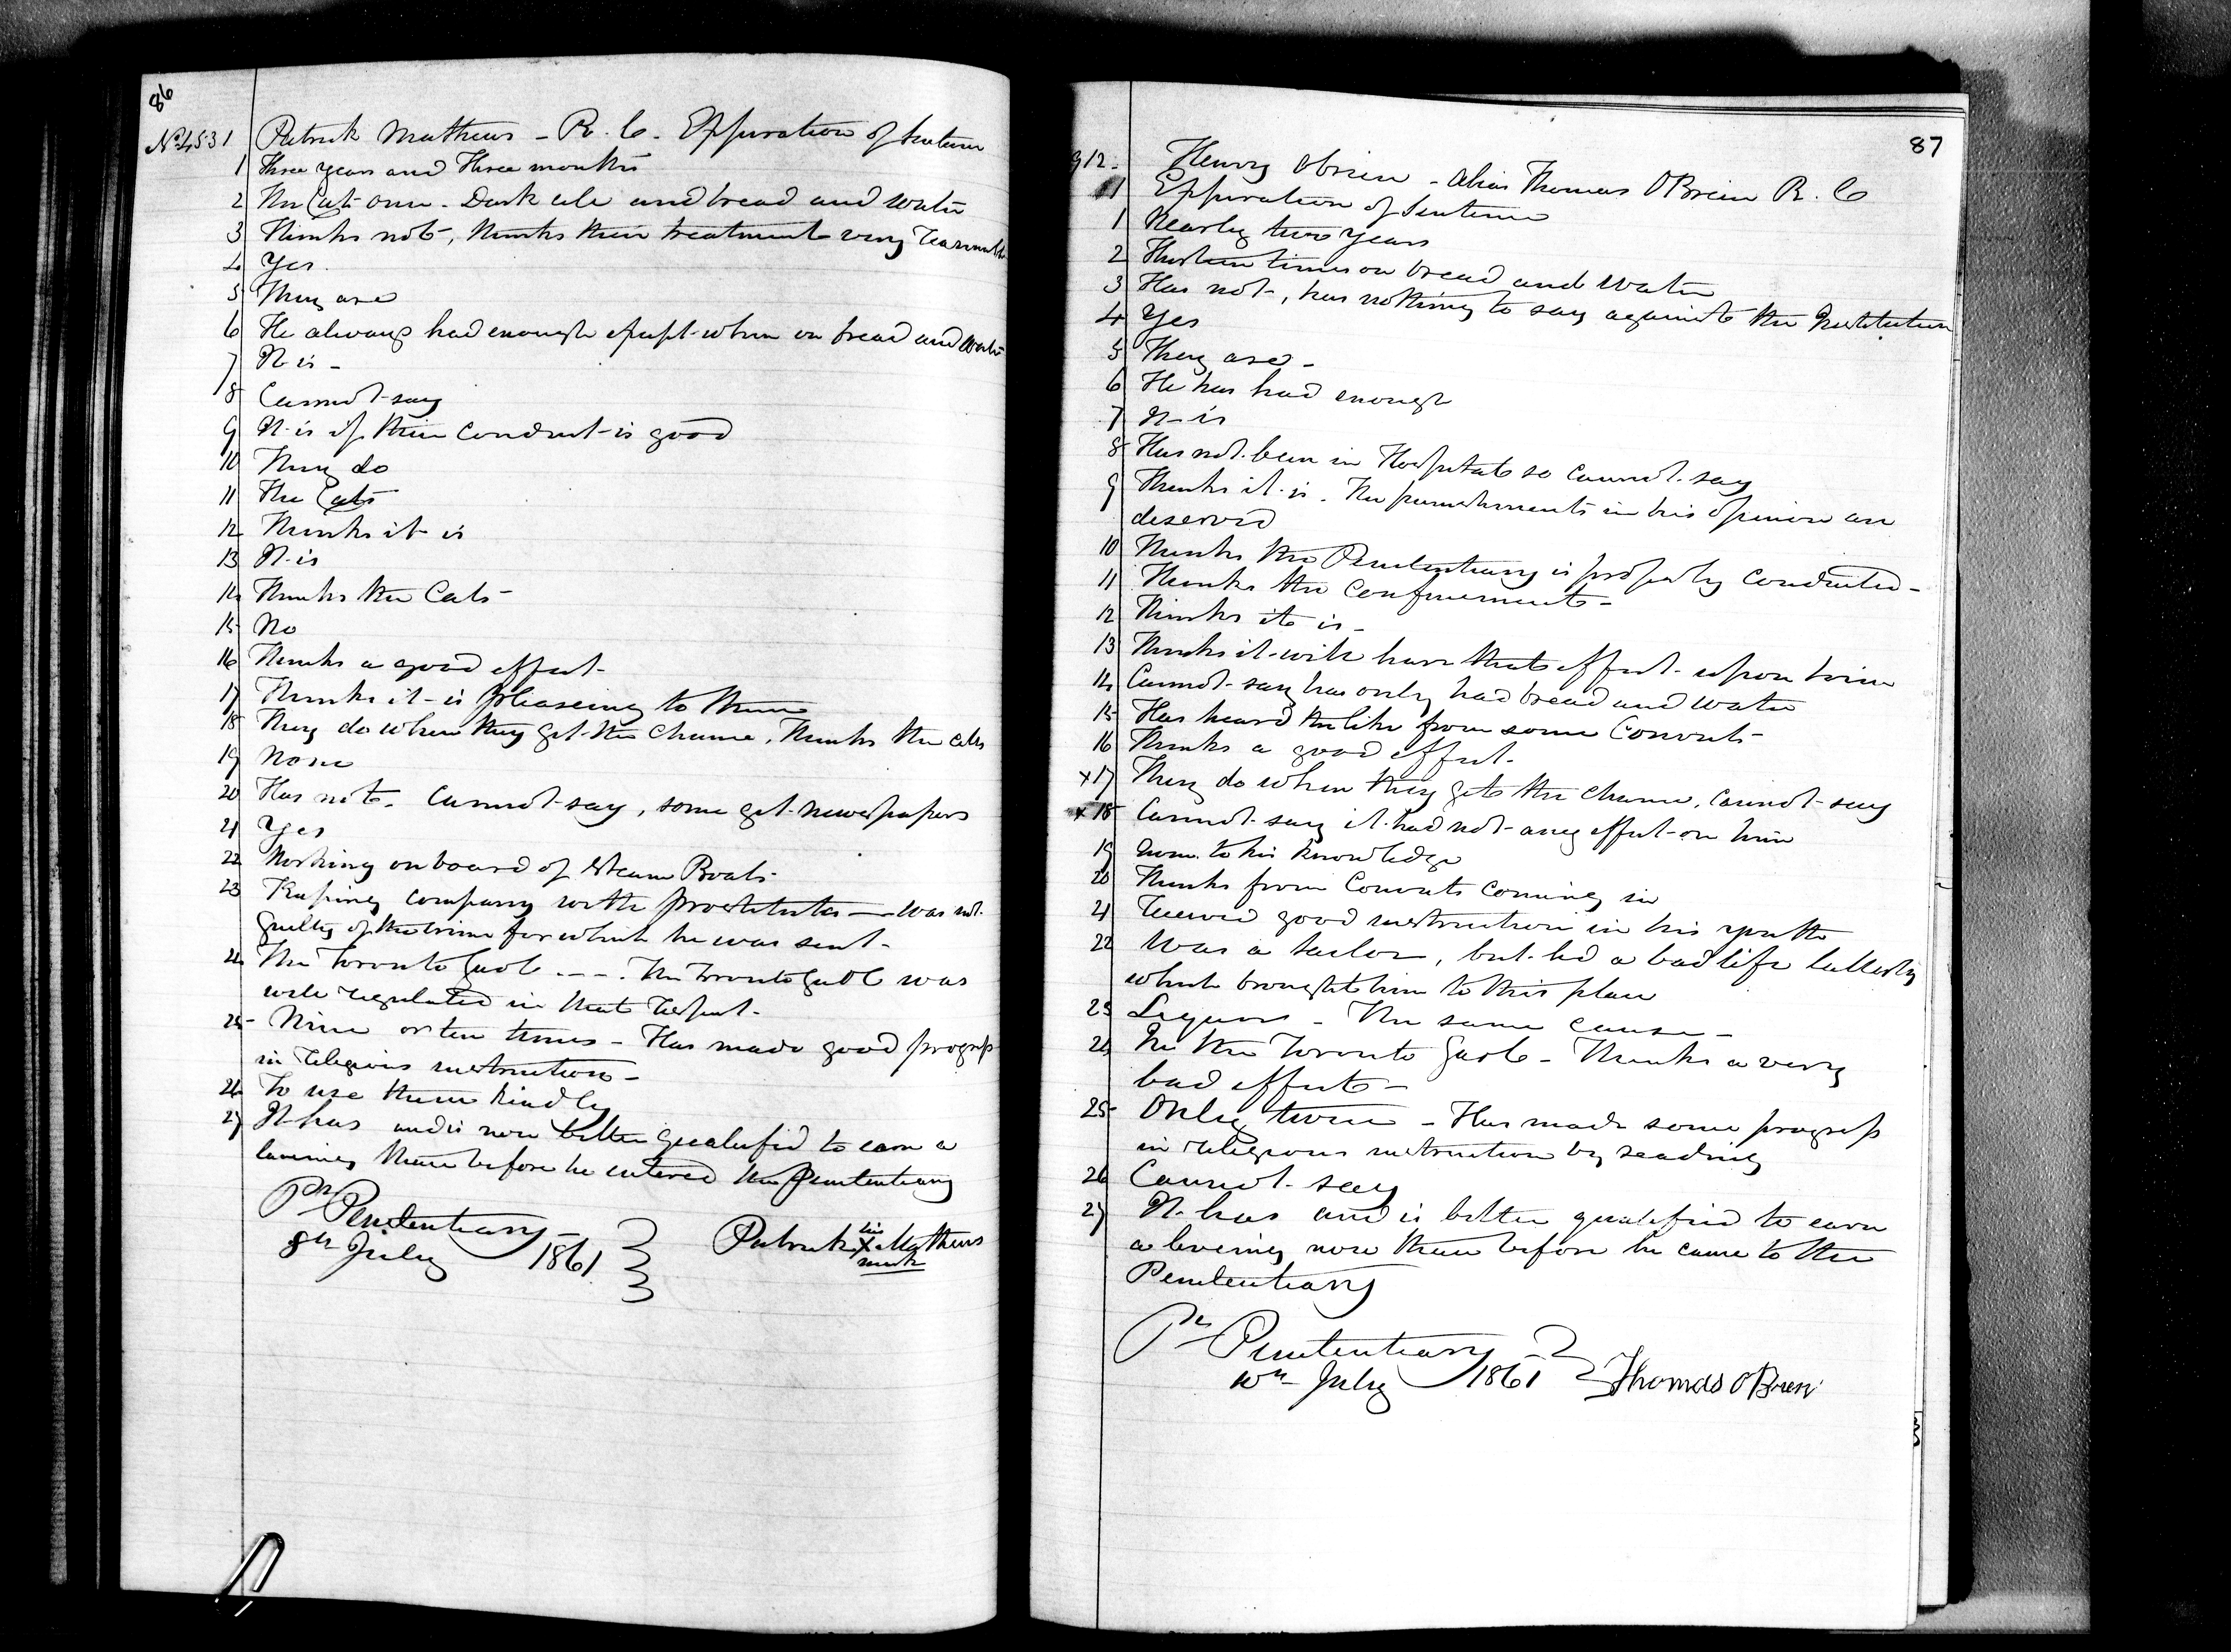 86
No 4531 Patrick Mathews - R. C. Expiration of Sentence
1 Three years and Three months
2 The Cats once - Dark cell and bread and water
3 Thinks not, thinks their treatment very reasonable
4 Yes
5 They are
6 He always had enough except when on bread and water
7 It is -
8 Cannot say
9 It is if their conduct is good
10 They do
11 The Cats
12 Thinks it is
13 It is
14 Thinks the Cats -
15 No
16 Thinks a good effect -
17 Thinks it is pleaseing to them
18 They do when they get the chance, Thinks the cells
19 None
20 Has not. Cannot say, some get newspapers
21 Yes
22 Working on board of Steam Boats
23 Keeping company with prostitutes — was not
guilty of the crime for which he was sent -
24 The Toronto Gaol - - - . The Toronto Gaol was
well regulated in that respect -
25 Nine or ten times - Has made good progress
in religious instruction -
26 To use them kindly
27 It has and is now better qualified to earn a
liveing than before he entered the Penitentiary
Pl Penitentiary
8th July 1861
Patrick his X mark Mathews
87
912 - Henry Obrien - alias Thomas OBrien R. C
Expiration of Sentence
1 Nearly two years
2 Thirteen times on bread and water
3 Has not, has nothing to say against the Institution
4 Yes
5 They are -
6 He has had enough
7 It is
8 Has not been in Hospital so cannot say
9 Thinks it is. The punishments in his opinion are
deserved
10 Thinks the Penitentiary is properly conducted -
11 Thinks the confinement -
12 Thinks it is -
13 Thinks it will have that effect upon him
14 Cannot say has only had bread and water
15 Has heard the like from some Convicts -
16 Thinks a good effect -
x 17 They do when they get the chance, cannot say
x 18 Cannot say it had not any effect on him
19 None to his knowledge
20 Thinks from Convicts coming in
21 Received good instruction in his youth
22 Was a sailor, but led a bad life latterly
which brought him to this place
23 Liquor - The same cause -
24 In the Toronto Gaol - Thinks a very
bad effect -
25 Only twice - Has made some progress
in religious instruction by reading
26 Cannot say
27 It has and is better qualified to earn
a liveing now than before he came to the
Penitentiary
Pl Penitentiary
10th July 1861
Thomas OBrien